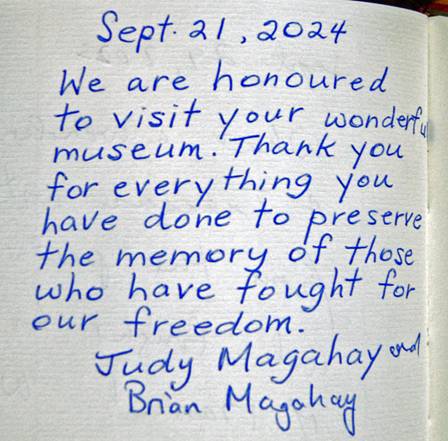 Sept. 21, 2024
We are honoured
to visit your wonderful
museum. Thank you
for everything you
have done to preserve
the memory of those
who have fought for
our freedom.
Judy Magahay and
Brian Magahay